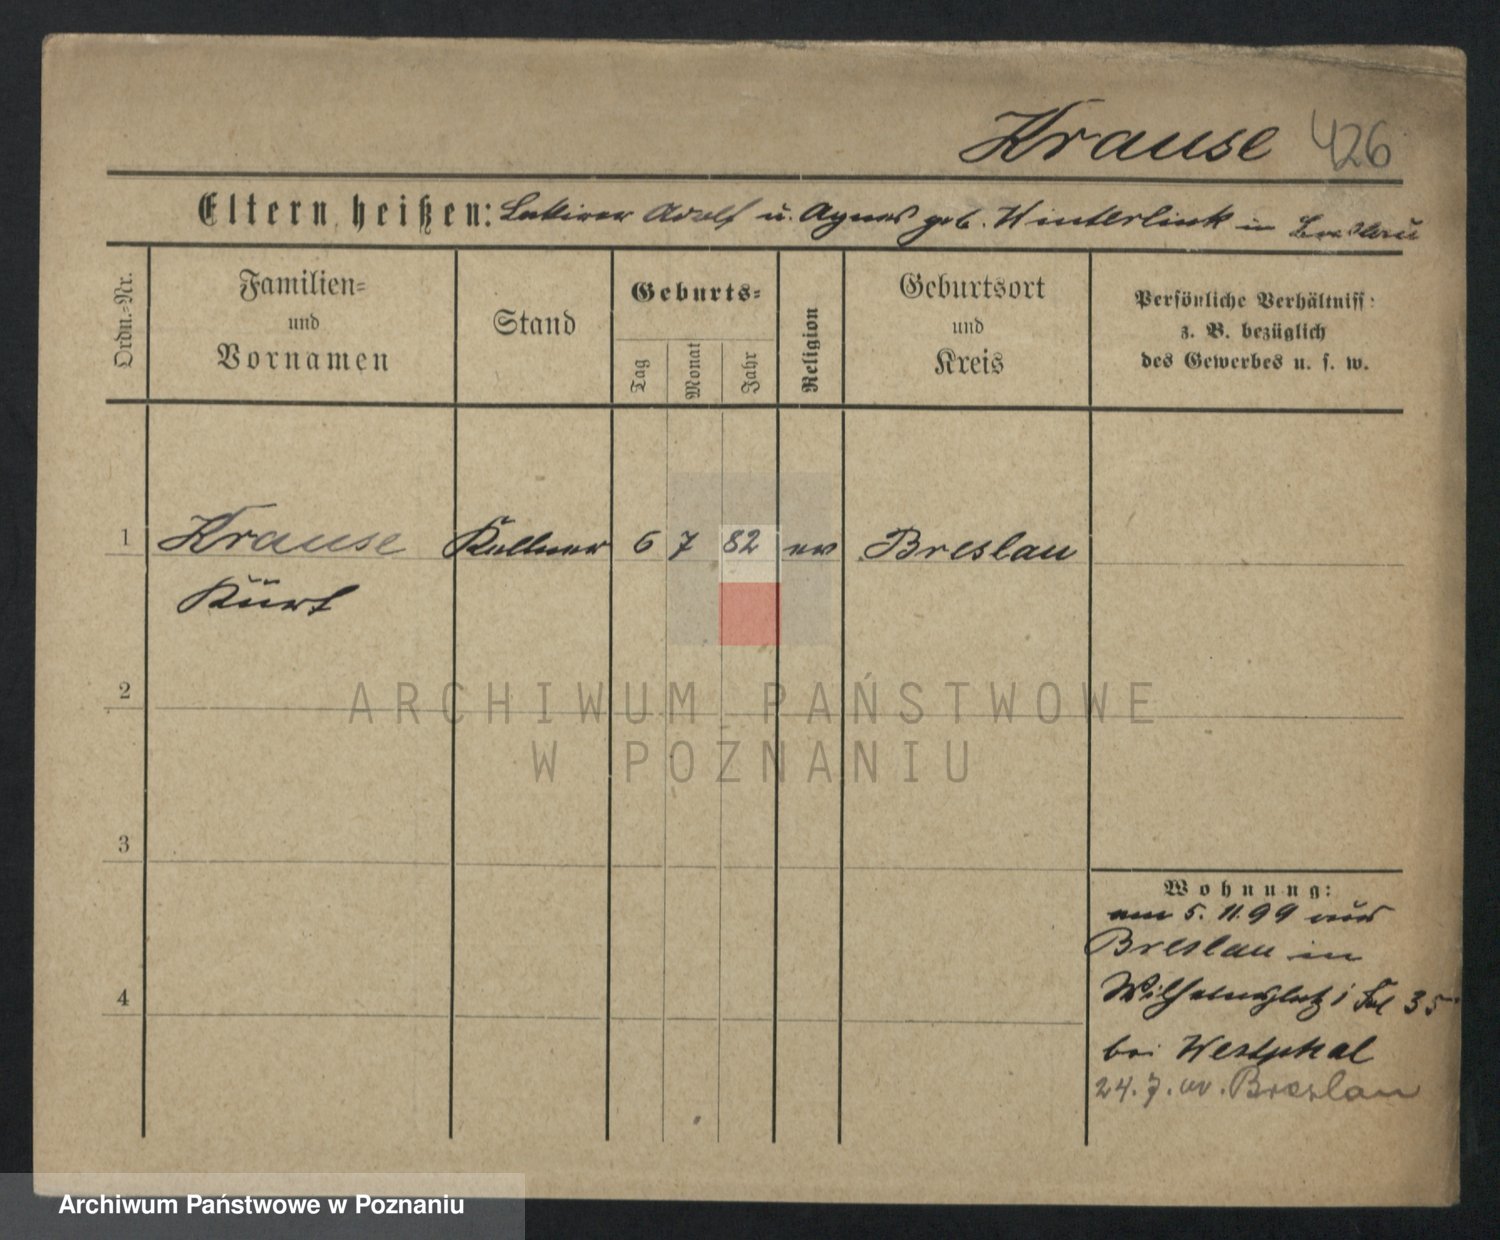 Krause 426
Eltern heißen: Lakirer Adolf u. Agnes geb. Winterlink in Breslau
Ordn.-Nr.
Familien=
und
Vornamen
Stand
Geburts=
Tag
Monat
Jahr
Religion
Geburtsort
und
Kreis
Persönliche Verhältniss:
z. B. bezüglich
des Gewerbes u. s. w.
1 Krause Kellner 6 7 82 ev Breslau
Kurt
2
ARCHIWUM PAŃSTWOWE
W POZNANIU
3
4
Wohnung:
am 5. 11. 99 aus
Breslau in
Wilhelmsplatz 35
bei Westphal
24. 7. Breslau
Archiwum Państwowe w Poznaniu